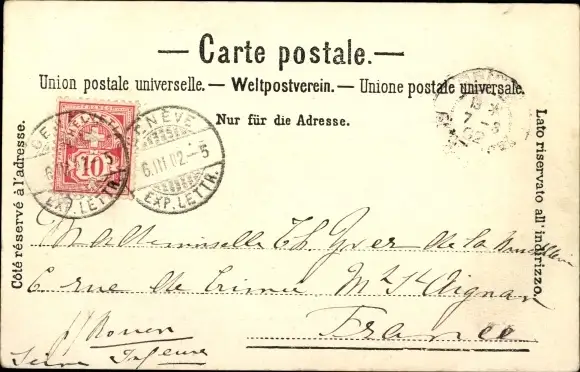 — Carte postale. —
Union postale universelle. — Weltpostverein. — Unione postale universale.
Nur für die Adresse.
Côté réservé à l'adresse.
Lato riservato all'indirizzo.
HELVETIA
10
GENÈVE
6.III.02.-5
EXP. LETTR.
7-3
02
Mademoiselle Th. Yver de la
6 rue de Crimée Mt St Aignan
France
p/ Rouen
Seine Infeure